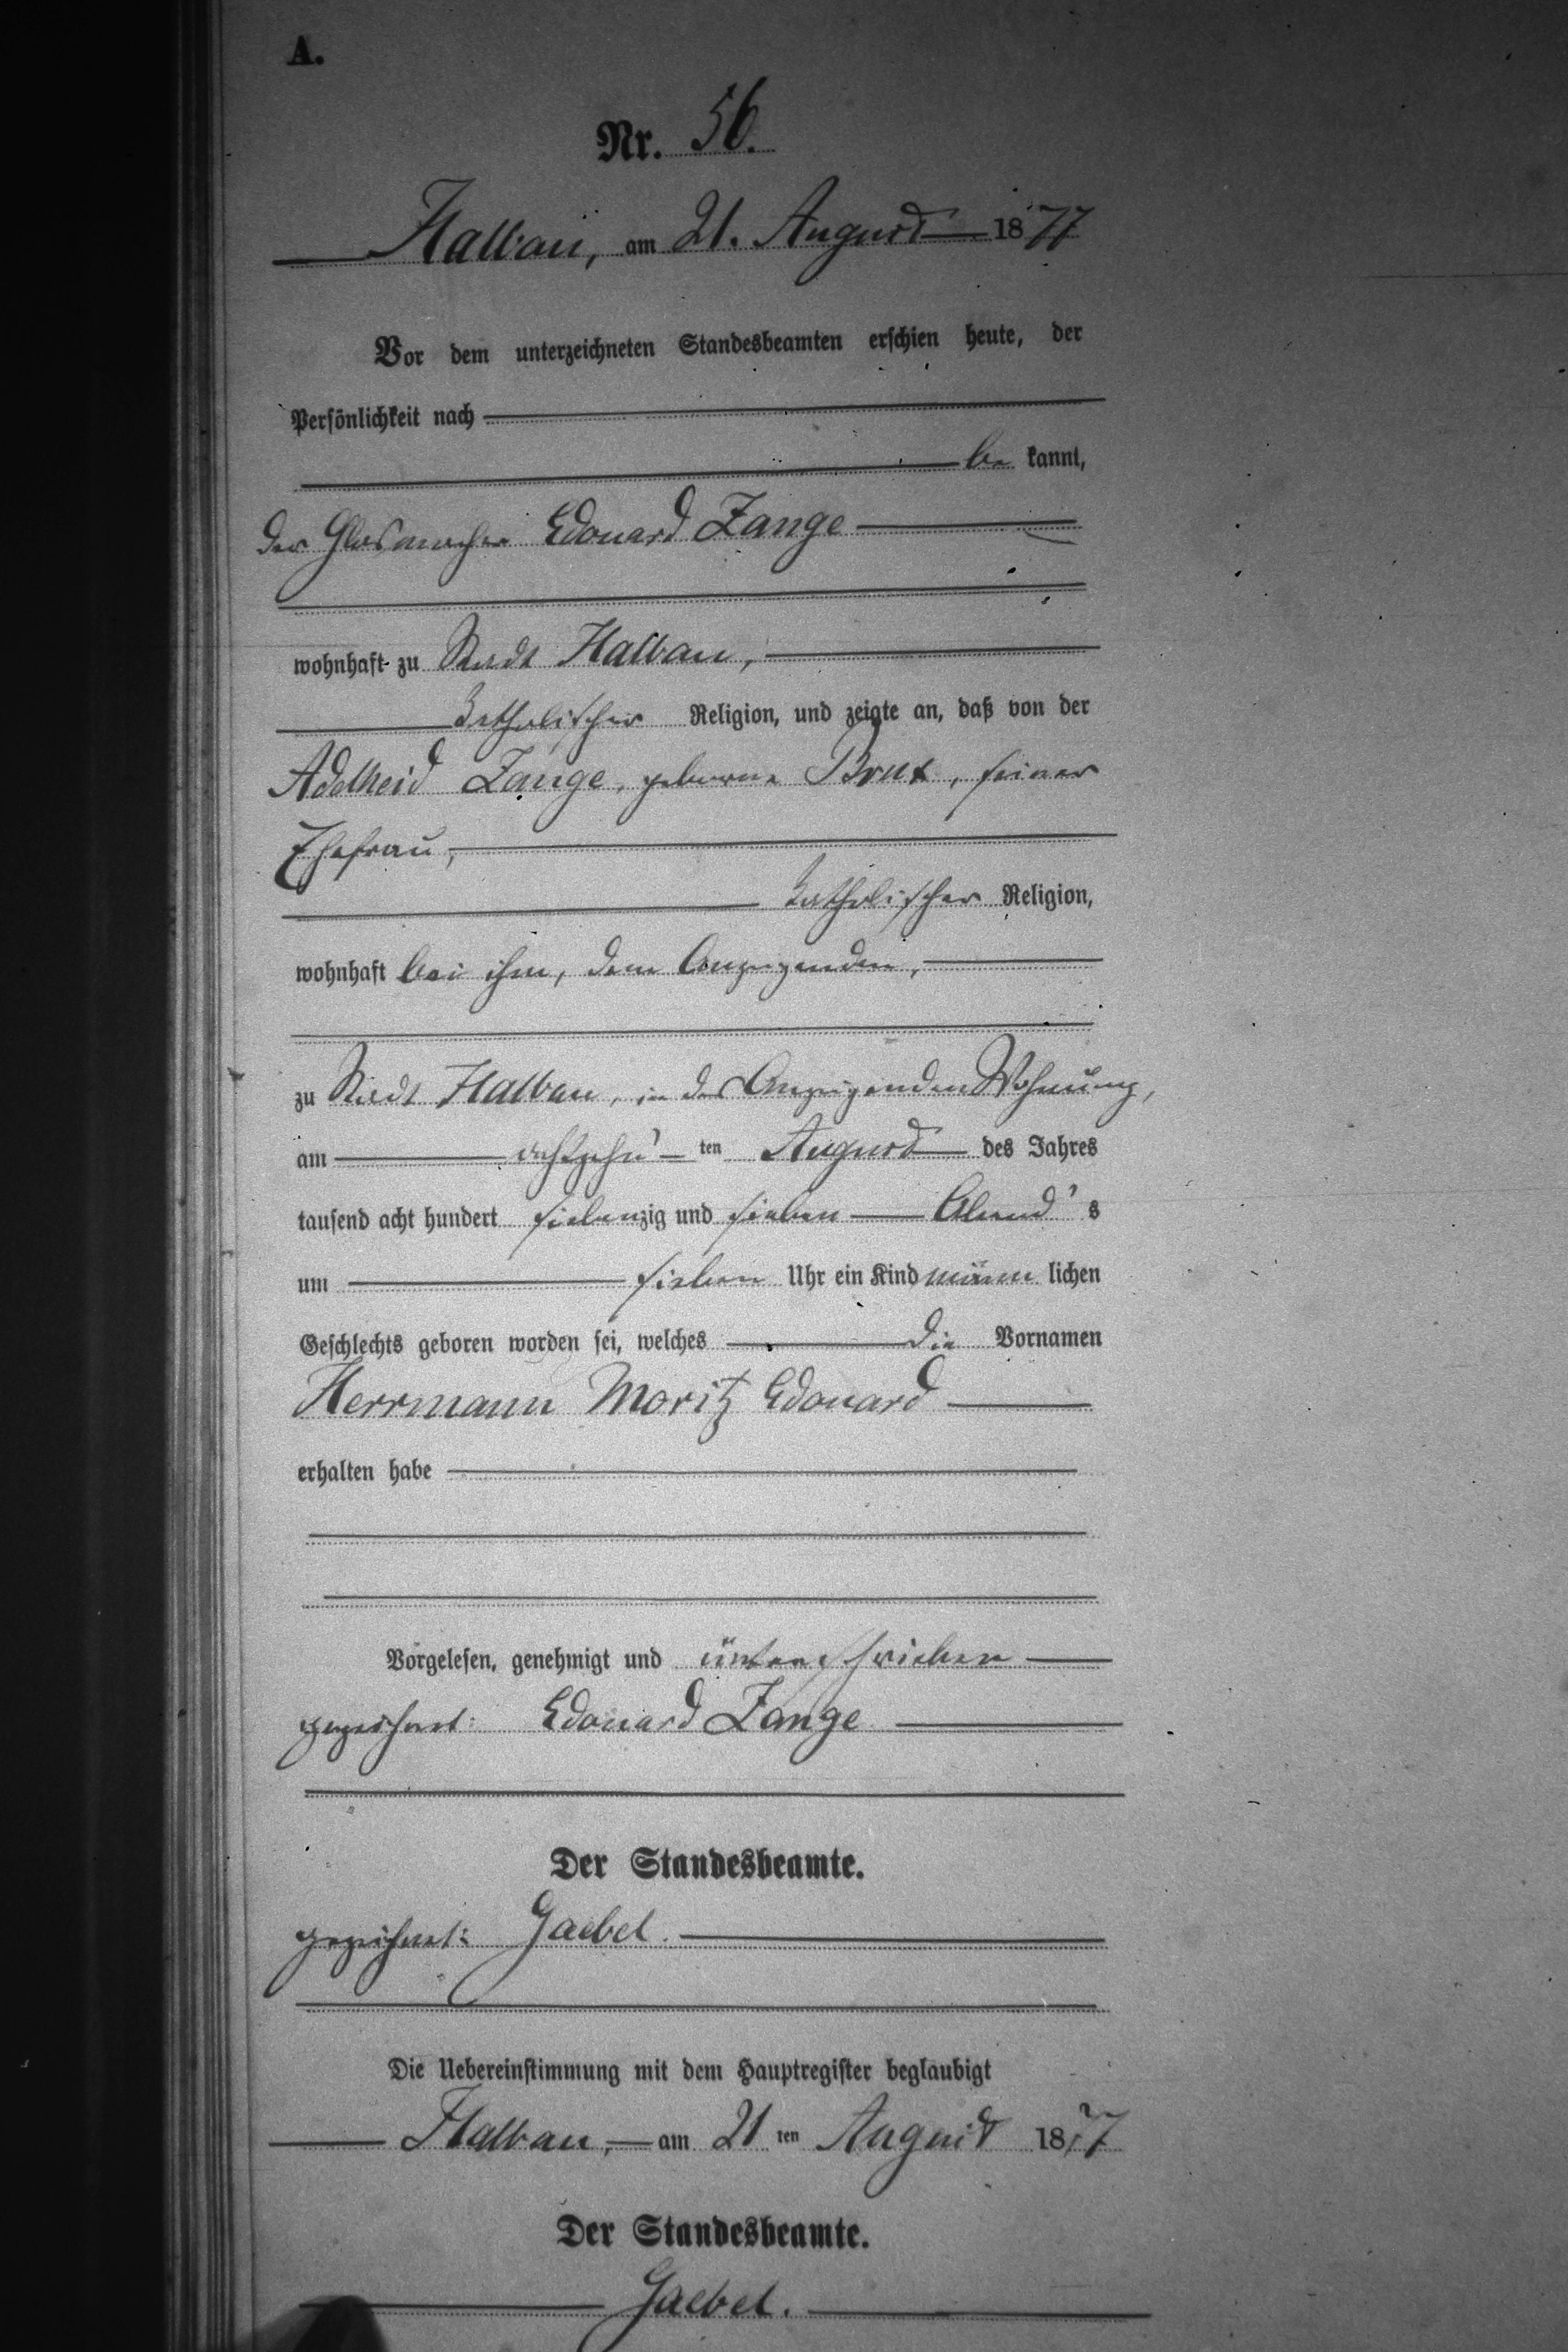 A.
Nr. 56.
Halbau, am 21. August 1877
Vor dem unterzeichneten Standesbeamten erschien heute, der
Persönlichkeit nach
be kannt,
der Glasmacher Edouard Zange
wohnhaft zu Stadt Halbau,
katholischer Religion, und zeigte an, daß von der
Adelheid Zange, geborne, seiner
Ehefrau,
katholischer Religion,
wohnhaft bei ihm, dem Anzeigenden,
zu Stadt Halbau, in des Anzeigenden Wohnung,
am achtzehn ten August des Jahres
tausend acht hundert siebenzig und sieben Abend s
um sieben Uhr ein Kind männ lichen
Geschlechts geboren worden sei, welches die Vornamen
Herrmann Moritz Edouard
erhalten habe
Vorgelesen, genehmigt und unterschrieben
gezeichnet: Edouard Zange
Der Standesbeamte.
gezeichnet: Gaebel.
Die Uebereinstimmung mit dem Hauptregister beglaubigt
Halbau, am 21 ten August 1877
Der Standesbeamte.
Gaebel.